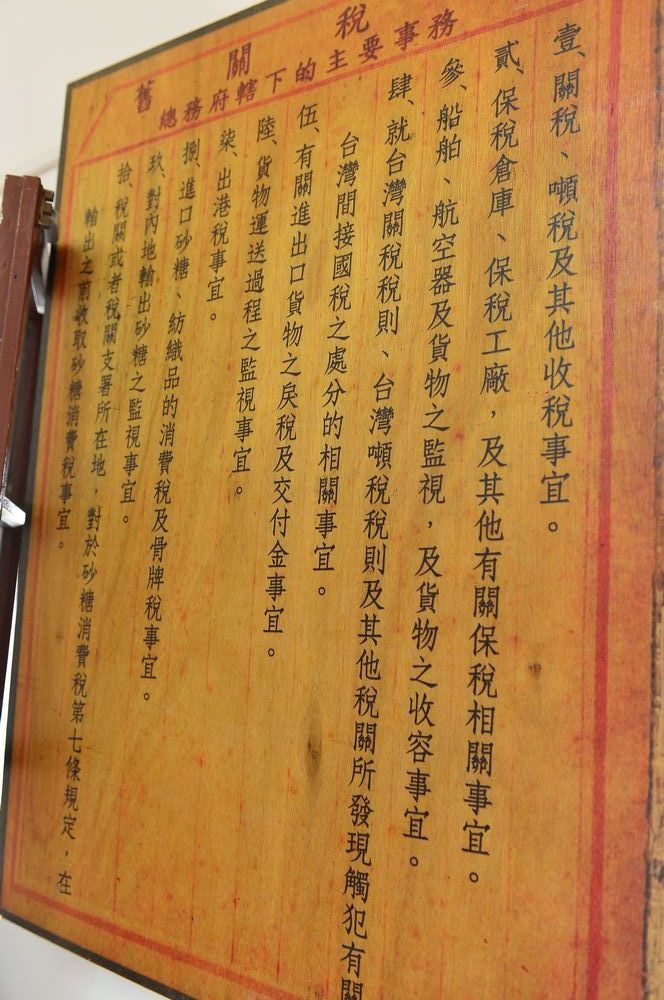 舊關稅
總務府轄下的主要事務
壹、關稅、噸稅及其他收稅事宜。
貳、保稅倉庫、保稅工廠，及其他有關保稅相關事宜。
參、船舶、航空器及貨物之監視，及貨物之收容事宜。
肆、就台灣關稅稅則、台灣噸稅稅則及其他稅關所發現觸犯有關
台灣間接國稅之處分的相關事宜。
伍、有關進出口貨物之戾稅及交付金事宜。
陸、貨物運送過程之監視事宜。
柒、出港稅事宜。
捌、進口砂糖、紡織品的消費稅及骨牌稅事宜。
玖、對內地輸出砂糖之監視事宜。
拾、稅關或者稅關支署所在地，對於砂糖消費稅第七條規定，在
輸出之前收取砂糖消費稅事宜。